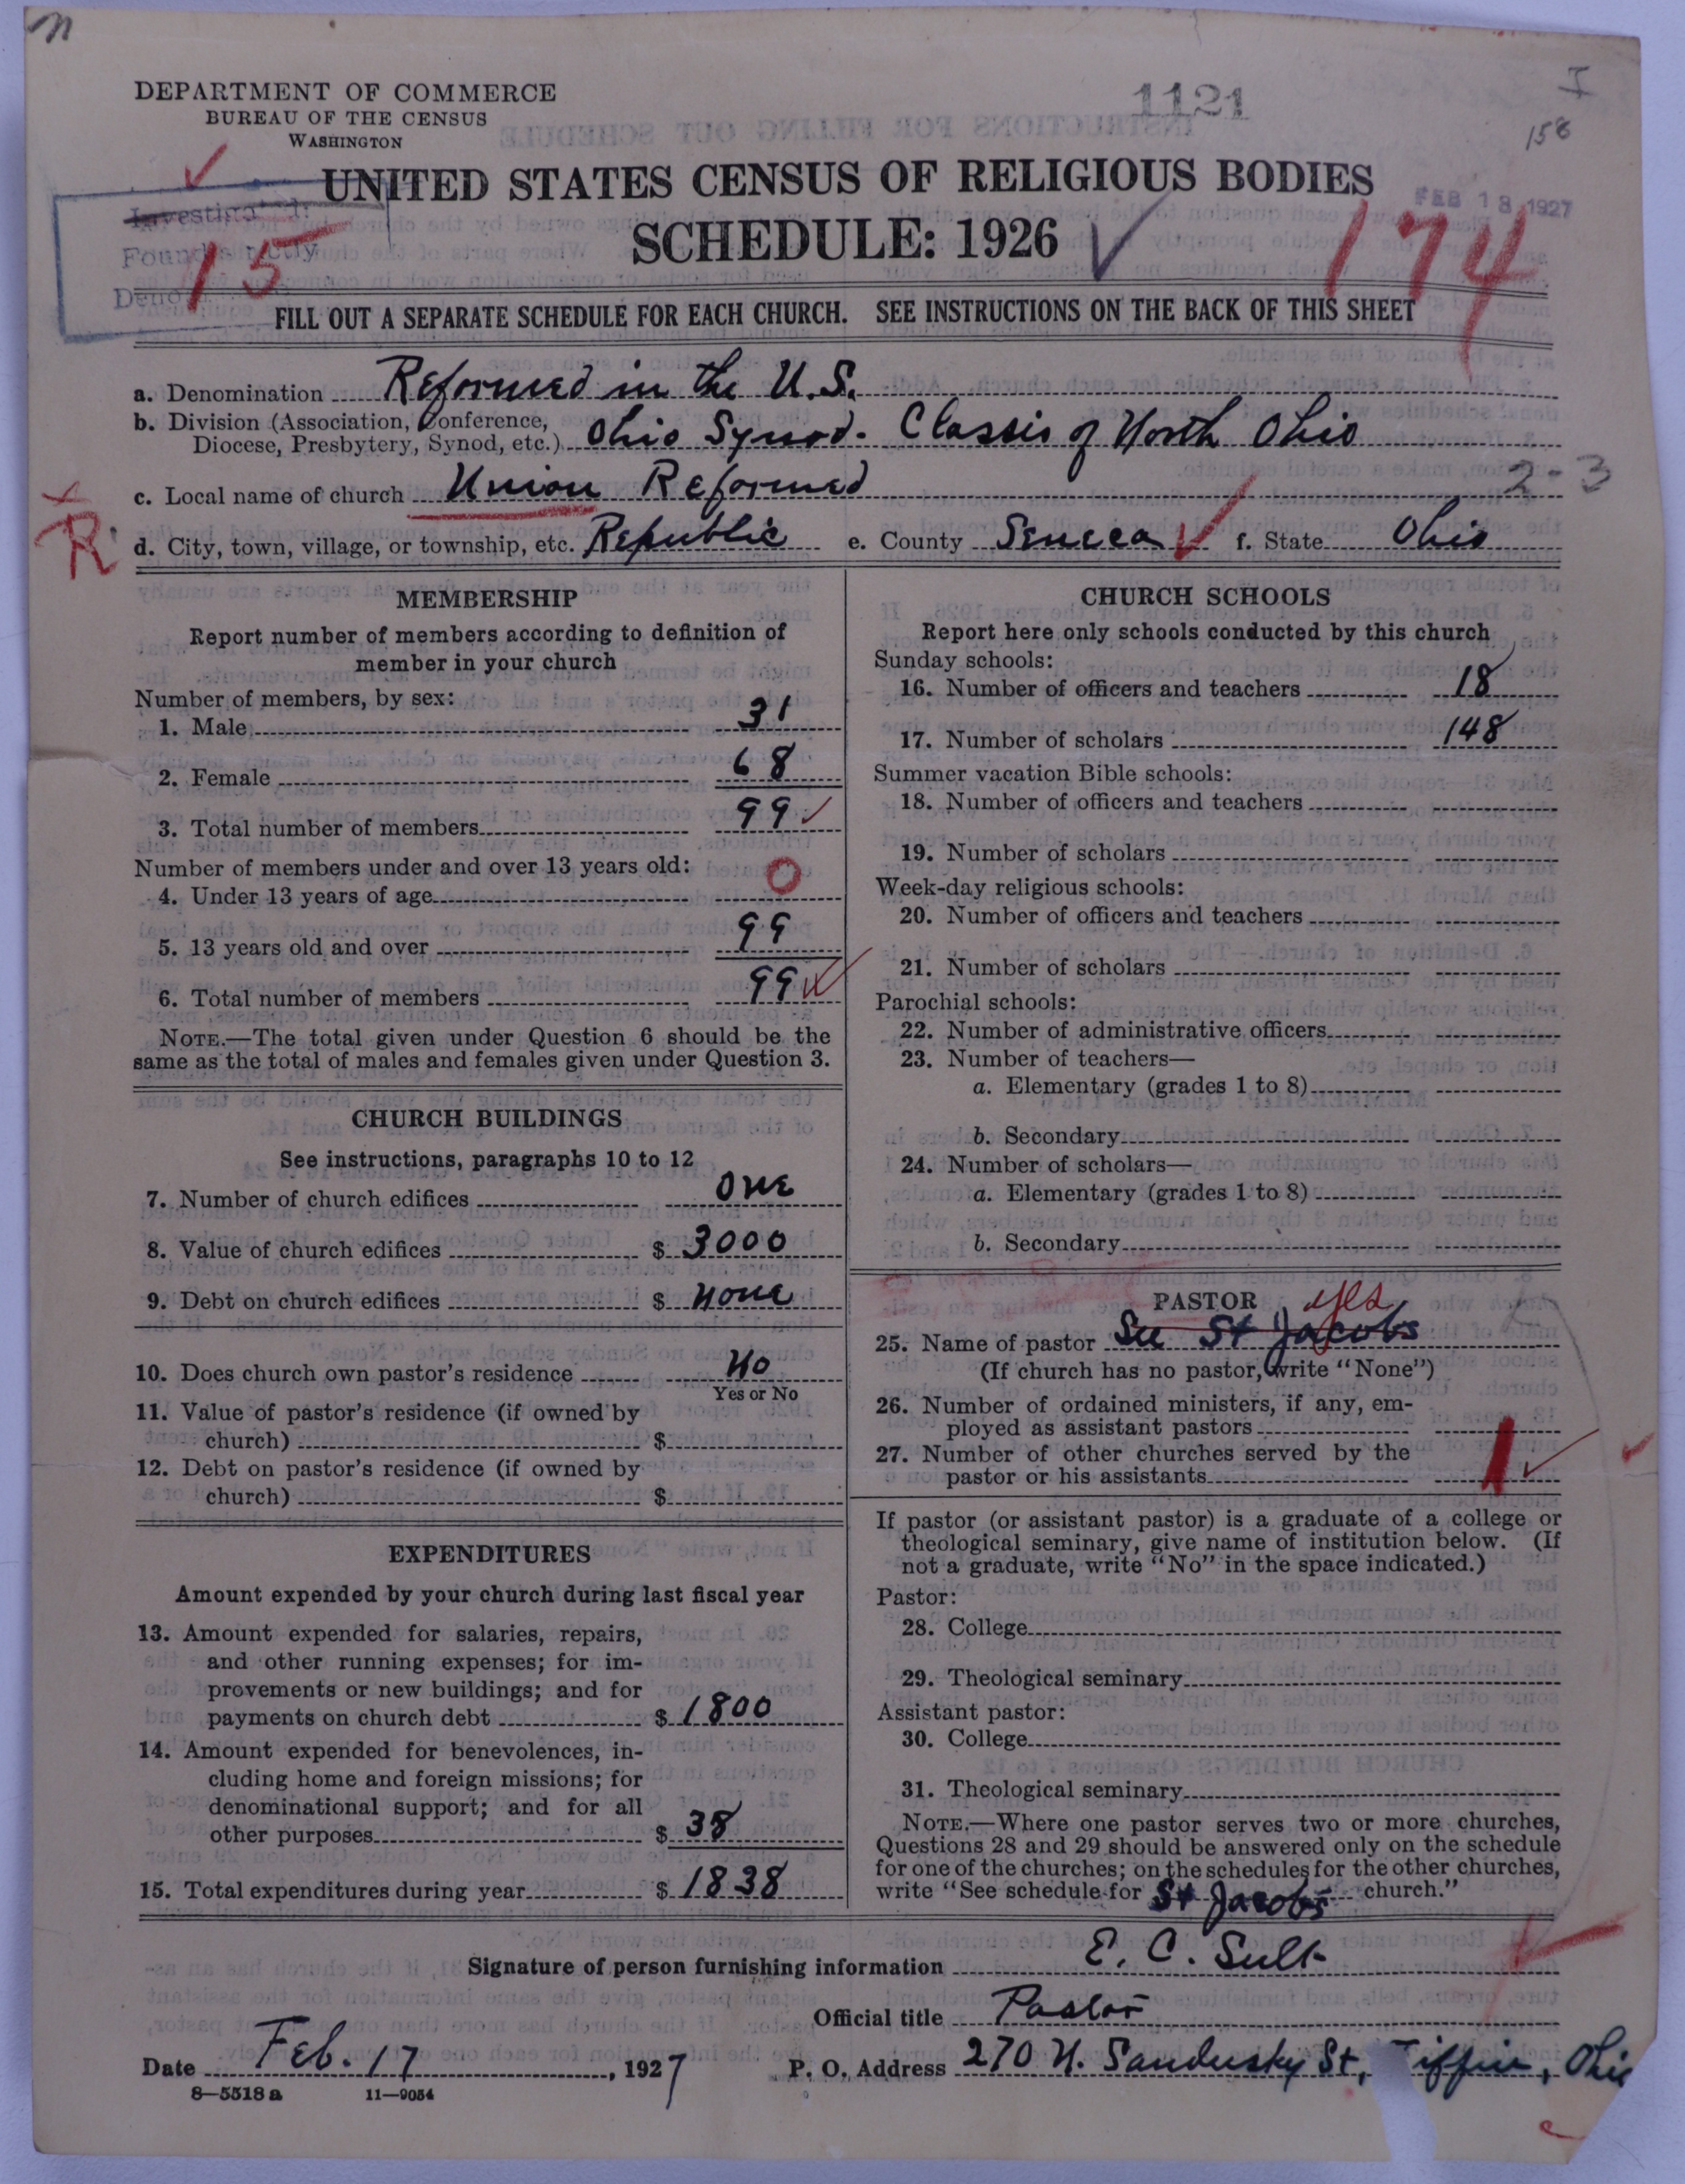 n
DEPARTMENT OF COMMERCE
BUREAU OF THE CENSUS
WASHINGTON
1121
I
158
UNITED STATES CENSUS OF RELIGIOUS BODIES
SCHEDULE: 1926
FEB 18 1927
15
174
FILL OUT A SEPARATE SCHEDULE FOR EACH CHURCH. SEE INSTRUCTIONS ON THE BACK OF THIS SHEET
a. Denomination Reformed in the U.S.
b. Division (Association, Conference,
Diocese, Presbytery, Synod, etc.) Ohio Synod. Classis of North Ohio
c. Local name of church Union Reformed
2-3
R
d. City, town, village, or township, etc. Republic e. County Seneca f. State Ohio
MEMBERSHIP
Report number of members according to definition of
member in your church
Number of members, by sex:
1. Male 31
2. Female 68
3. Total number of members 99
Number of members under and over 13 years old:
4. Under 13 years of age 0
5. 13 years old and over 99
6. Total number of members 99
NOTE.—The total given under Question 6 should be the
same as the total of males and females given under Question 3.
CHURCH BUILDINGS
See instructions, paragraphs 10 to 12
7. Number of church edifices One
8. Value of church edifices $ 3000
9. Debt on church edifices $ None
10. Does church own pastor's residence No
Yes or No
11. Value of pastor's residence (if owned by
church) $
12. Debt on pastor's residence (if owned by
church) $
EXPENDITURES
Amount expended by your church during last fiscal year
13. Amount expended for salaries, repairs,
and other running expenses; for im-
provements or new buildings; and for
payments on church debt $ 1800
14. Amount expended for benevolences, in-
cluding home and foreign missions; for
denominational support; and for all
other purposes $ 38
15. Total expenditures during year $ 1838
CHURCH SCHOOLS
Report here only schools conducted by this church
Sunday schools:
16. Number of officers and teachers 18
17. Number of scholars 148
Summer vacation Bible schools:
18. Number of officers and teachers
19. Number of scholars
Week-day religious schools:
20. Number of officers and teachers
21. Number of scholars
Parochial schools:
22. Number of administrative officers
23. Number of teachers—
a. Elementary (grades 1 to 8)
b. Secondary
24. Number of scholars—
a. Elementary (grades 1 to 8)
b. Secondary
PASTOR yes
25. Name of pastor See St Jacobs
(If church has no pastor, write "None")
26. Number of ordained ministers, if any, em-
ployed as assistant pastors
27. Number of other churches served by the
pastor or his assistants 1
If pastor (or assistant pastor) is a graduate of a college or
theological seminary, give name of institution below. (If
not a graduate, write "No" in the space indicated.)
Pastor:
28. College
29. Theological seminary
Assistant pastor:
30. College
31. Theological seminary
NOTE.—Where one pastor serves two or more churches,
Questions 28 and 29 should be answered only on the schedule
for one of the churches; on the schedules for the other churches,
write "See schedule for St Jacobs church."
Signature of person furnishing information E. C. Sult
Official title Pastor
Date Feb. 17, 1927 P. O. Address 270 N. Sandusky St, Tiffin, Ohio
8—5518 a 11—9054